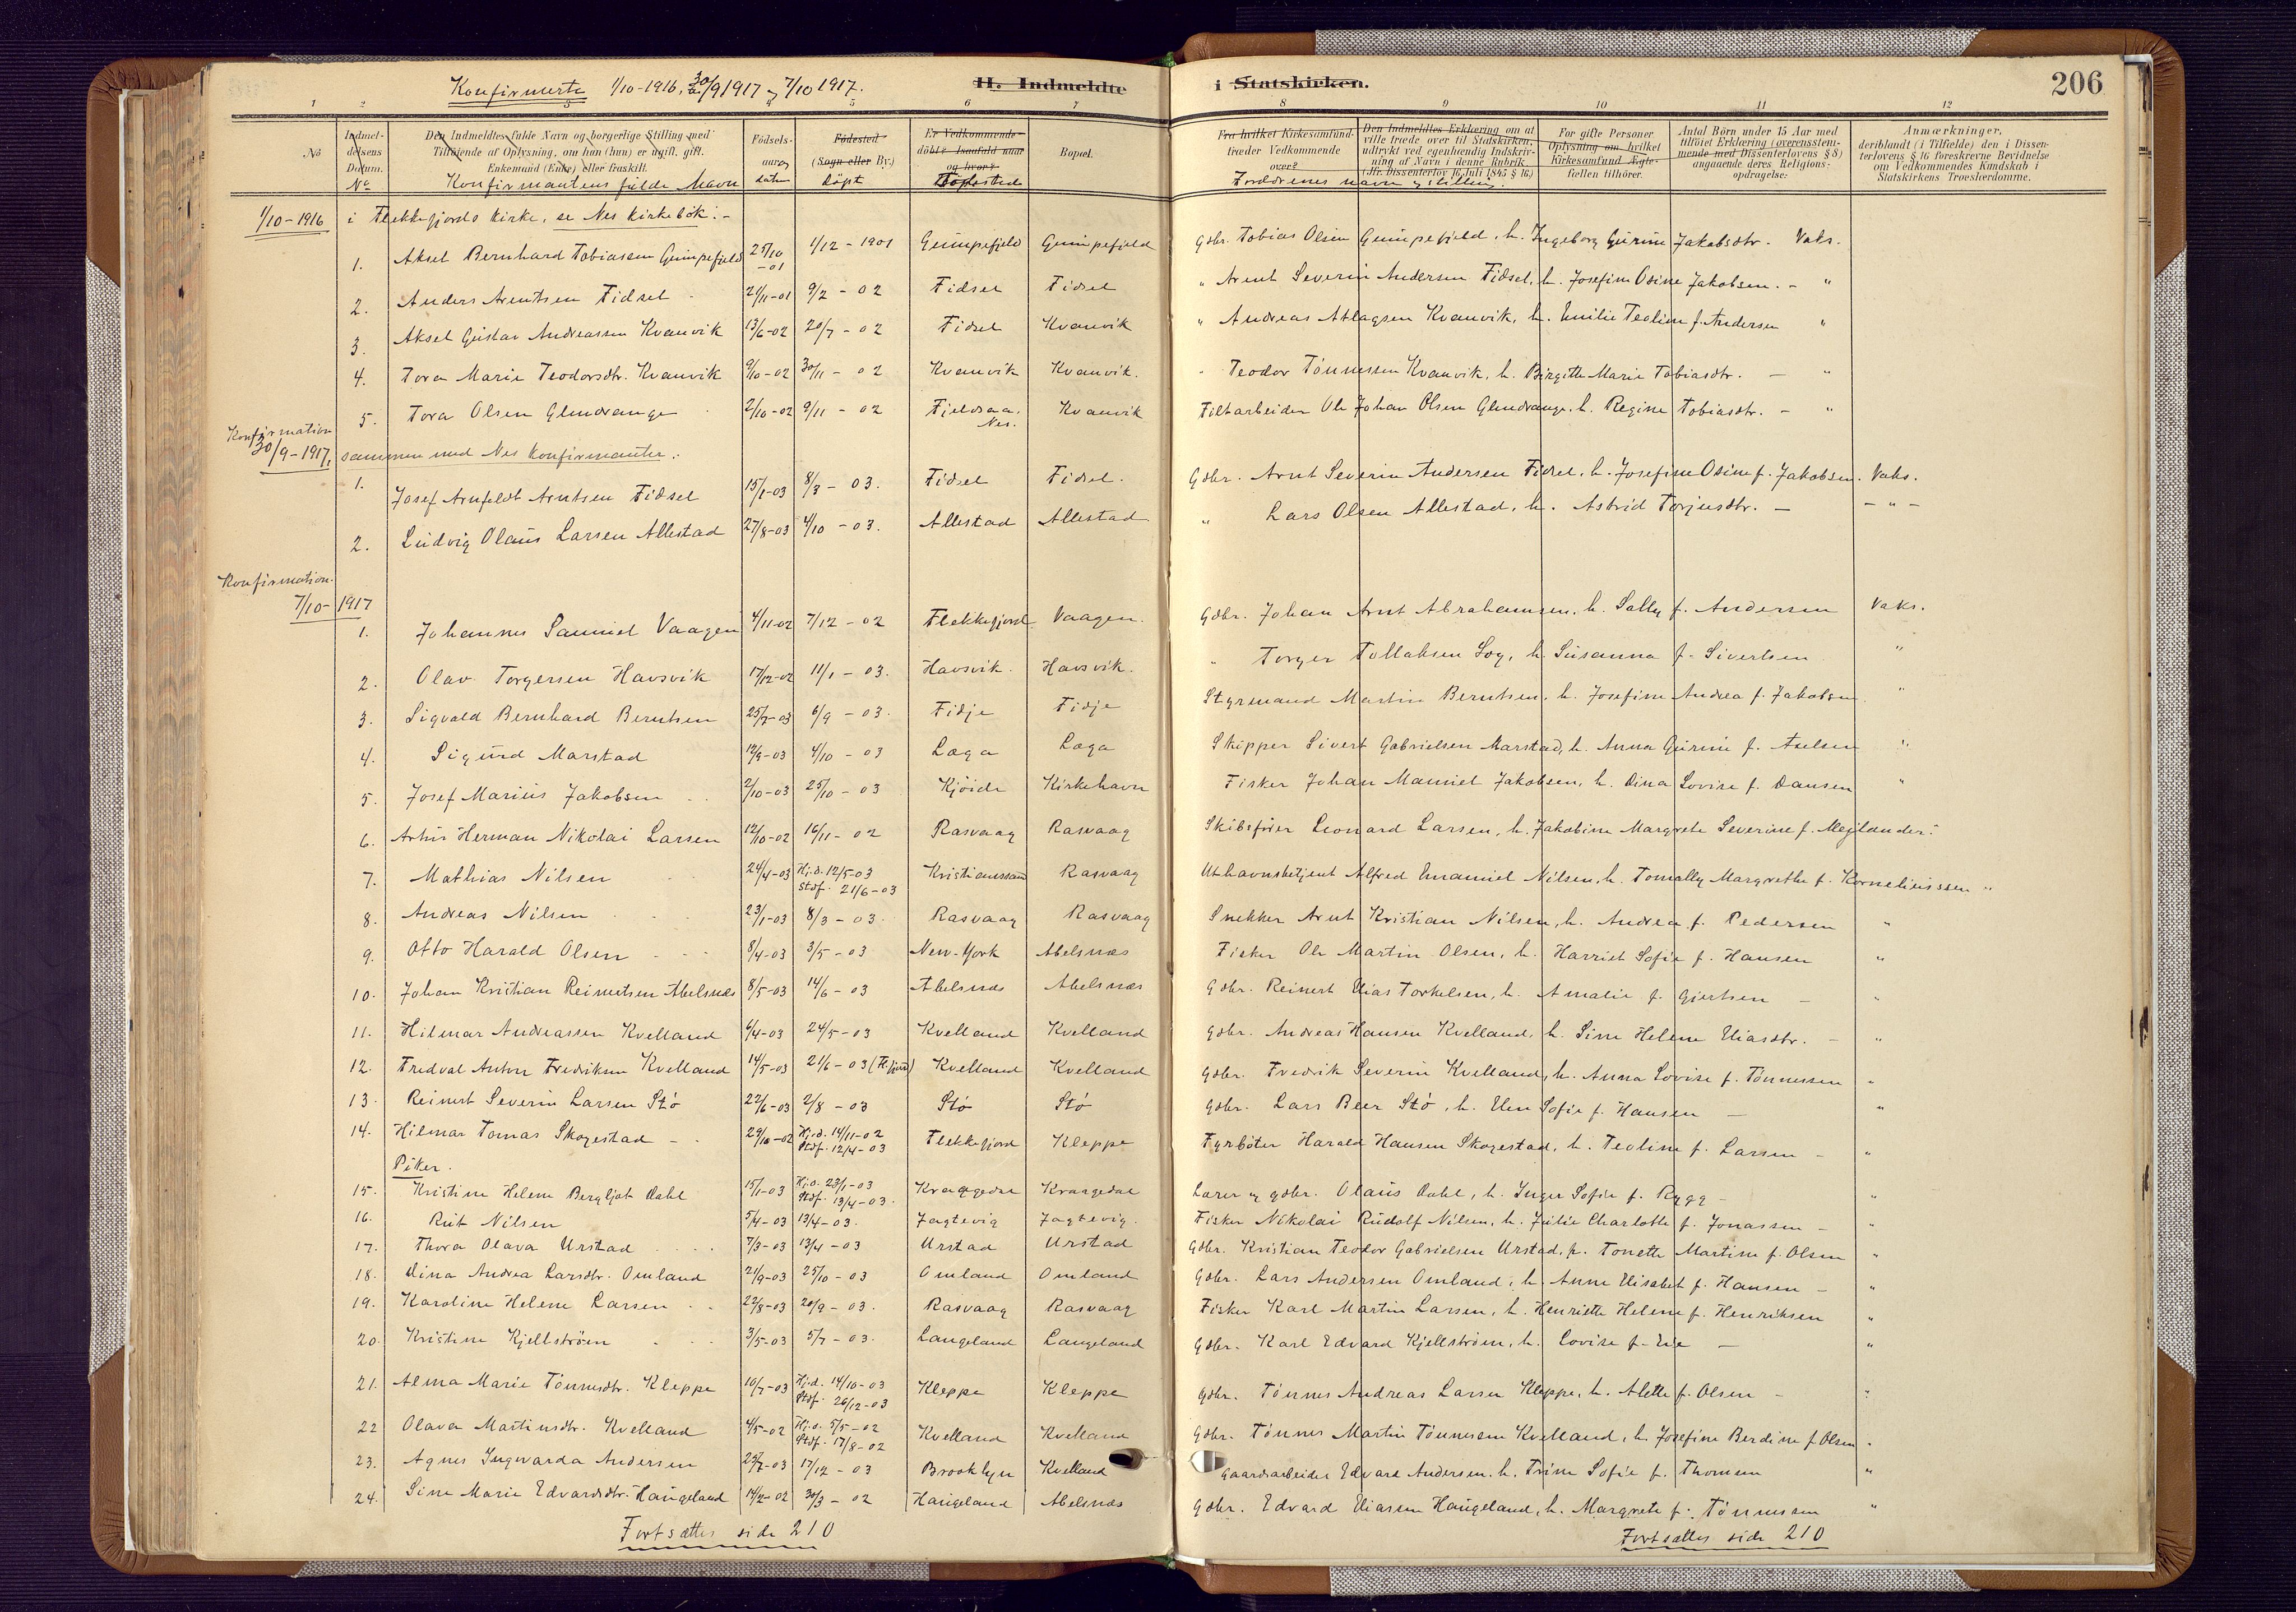 Konfirmerte 1/10-1916, 30/9 1917 og 7/10 1917.
II. Indmeldte i Statskirken.
206
1 2 3 4 5 6 7 8 9 10 11 12
No
Indmeldelsens Datum.
No
Den Indmeldtes fulde Navn og borgerlige Stilling med Tilføiende af Oplysning, om han (hun) er ugift, gift, Enkemand (Enke) eller fraskilt.
Konfirmantens fulde Navn
Fødselsaar
datum
Fødested (Sogn eller By.)
döpt
Er Vedkommende døbt? Isaafald naar og hvor?
Bopæl.
Fra hvilket Kirkesamfund træder Vedkommende over?
Forældrenes navn og stilling.
Den Indmeldtes Erklæring om at ville træde over til Statskirken, udtrykt ved egenhændig Indskrivning af Navn i denne Rubrik. (Jfr. Dissenterlov 16 Juli 1845 § 16)
For gifte Personer Oplysning om hvilket Kirkesamfund Ægtefællen tilhører.
Antal Børn under 15 Aar med tilføiet Erklæring (overensstemmende med Dissenterlovens § 8) angaaende deres Religionsopdragelse:
Anmærkninger, deriblandt (i Tilfælde) den i Dissenterlovens § 16 foreskrevne Bevidnelse om Vedkommendes Kundskab i Statskirkens Troeslærdomme.
1/10-1916 i Flekkefjords Kirke, se Nes Kirkebok.-
1. Aksel Bernhard Tobiassen Gumpefjeld 25/10-01 1/12-1901 Gumpefjeld Gumpefjeld Gdbr. Tobias Olsen Gumpefjeld, h. Ingeborg Gurine Jakobsdtr. Vaks.
2. Anders Arentsen Fidsel 21/11-01 9/2-02 Fidsel Fidsel " Arent Severin Andersen Fidsel, h. Josefine Osine Jakobsen. - "
3. Aksel Gustav Andreassen Kvanvik 13/6-02 20/7-02 Fidsel Kvanvik " Andreas Atlagsen Kvanvik, h. Emilie Teoline f. Andersen "
4. Tora Marie Teodorsdtr. Kvanvik 9/10-02 30/11-02 Kvanvik Kvanvik. " Teodor Tönnessen Kvanvik, h. Birgitte Marie Tobiasdtr. - "
5. Tora Olsen Glendrange 2/10-02 9/11-02 Fjeldsaa. Nes. Kvanvik Filtarbeider Ole Johan Olsen Glendrange, h. Regine Tobiasdtr. - "
Konfirmation
30/9-1917, sammen med Nes Konfirmanter.
1. Josef Arnfeldt Arntsen Fidsel 15/1-03 8/3-03. Fidsel Fidsel. Gdbr. Arnt Severin Andersen Fidsel, h. Josefine Osine f. Jakobsen. Vaks.
2. Ludvig Olaus Larsen Allestad 27/8-03 4/10-03. Allestad Allestad " Lars Olsen Allestad, h. Astrid Torjusdtr. - - " -
Konfirmation
7/10-1917
1. Johannes Samuel Vaagen 4/11-02 7/12-02 Flekkefjord Vaagen. Gdbr. Johan Arnt Abrahamsen, h. Sally f. Andersen Vaks.
2. Olav Torgersen Havsvik 17/12-02 11/1-03. Havsvik. Havsvik. " Torger Tollaksen Log, h. Susanna f. Sivertsen "
3. Sigvald Bernhard Berntsen 25/7-03 6/9-03. Fidje Fidje Styrmand Martin Berntsen, h. Josefine Andrea f. Jakobsen. "
4. Sigurd Marstad 12/9-03 4/10-03 Læga Læga Skipper Sivert Gabrielsen Marstad, h. Anna Gurine f. Axelsen "
5. Josef Marius Jakobsen 2/10-03 25/10-03 Kjöide Kirkehavn Fisker Johan Manuel Jakobsen, h. Dina Lovise f. Dansen "
6. Artur Herman Nikolai Larsen 12/10-02 16/11-02 Rasvaag Rasvaag Skibsförer Leonard Larsen, h. Jakobine Margrete Severine f. Mejlænder "
7. Mathias Nilsen 24/4-03 Hj.d. 12/5-03 Stdf. 21/6-03 Kristianssand Rasvaag Uthavnsbetjent Alfred Emanuel Nilsen, h. Tomally Margrethe f. Korneliussen "
8. Andreas Nilsen 23/1-03 8/3-03. Rasvaag Rasvaag Snekker Arnt Kristian Nilsen, h. Andrea f. Pedersen "
9. Otto Harald Olsen 8/4-03 3/5-03 New-York Abelsnæs Fisker Ole Martin Olsen, h. Harriet Sofie f. Hansen "
10. Johan Kristian Reinertsen Abelsnæs 8/5-03 14/6-03 Abelsnæs Abelsnæs Gdbr. Reinert Elias Torkelsen, h. Amalie f. Gjertsen - "
11. Hilmar Andreassen Kvelland 6/4-03 24/5-03 Kvelland Kvelland Gdbr. Andreas Hansen Kvelland, h. Sine Helene Eliasdtr. - "
12. Fredval Anton Fredriksen Kvelland 14/5-03 21/6-03 (Fl.fjord) Kvelland Kvelland Gdbr. Fredrik Severin Kvelland, h. Anna Lovise f. Tönnessen "
13. Reinert Severin Larsen Stö 22/6-03 2/8-03 Stö Stö Gdbr. Lars Beer Stö, h. Elen Sofie f. Hansen - "
14. Hilmar Tomas Skogestad 29/10-02 Hj.d. 14/11-02 Stdf. 12/4-03 Flekkefjord Kleppe Fyrböter Harald Hansen Skogestad, h. Teoline f. Larsen - "
Piker.
15. Kristine Helene Bergljot Dahl 15/1-03 Hj.d. 23/1-03 Stdf. 13/4-03. Kraggedal Kraagedal Lærer og gdbr. Olaus Dahl, h. Inger Sofie f. Rygg - "
16. Rut Nilsen 5/4-03 13/4-03. Jagtevig Jagtevig. Fisker Nikolai Rudolf Nilsen, h. Julie Charlotte f. Jonassen - "
17. Thora Olava Urstad 7/3-03 13/4-03 Urstad Urstad Gdbr. Kristian Teodor Gabrielsen Urstad, h. Tonette Martine f. Olsen "
18. Dina Andrea Larsdtr. Omland 21/9-03 25/10-03 Omland Omland Gdbr. Lars Andersen Omland, h. Anne Elisabet f. Hansen - "
19. Karoline Helene Larsen 22/8-03 20/9-03. Rasvaag Rasvaag Fisker Karl Martin Larsen, h. Henriette Helene f. Henriksen "
20. Kristine Kjellström 3/5-03 5/7-03. Langeland Langeland Gdbr. Karl Edvard Kjellström, h. Lovise f. Eie - "
21. Alma Marie Tönnesdtr. Kleppe 10/7-03 Hj.d. 14/10-03 Stdf. 26/12-03 Kleppe Kleppe Gdbr. Tönnes Andreas Larsen Kleppe, h. Alette f. Olsen - "
22 Olava Martinsdtr. Kvelland 4/5-02 Hj.d. 5/5-02 Stdf. 17/8-02 Kvelland Kvelland Gdbr. Tönnes Martin Tönnessen Kvelland, h. Josefine Berdine f. Olsen "
23. Agnes Ingvarda Andersen 29/7-03 17/12-03 Brooklyn Kvelland Gaardsarbeider Edvard Andersen, h. Trine Sofie f. Thomsen "
24. Sine Marie Edvardsdtr. Haugeland 14/2-02 30/3-02 Haugeland Abelsnæs Gdbr. Edvard Eliassen Haugeland, h. Margrete f. Tönnessen "
Fortsættes side 210
Fortsættes side 210